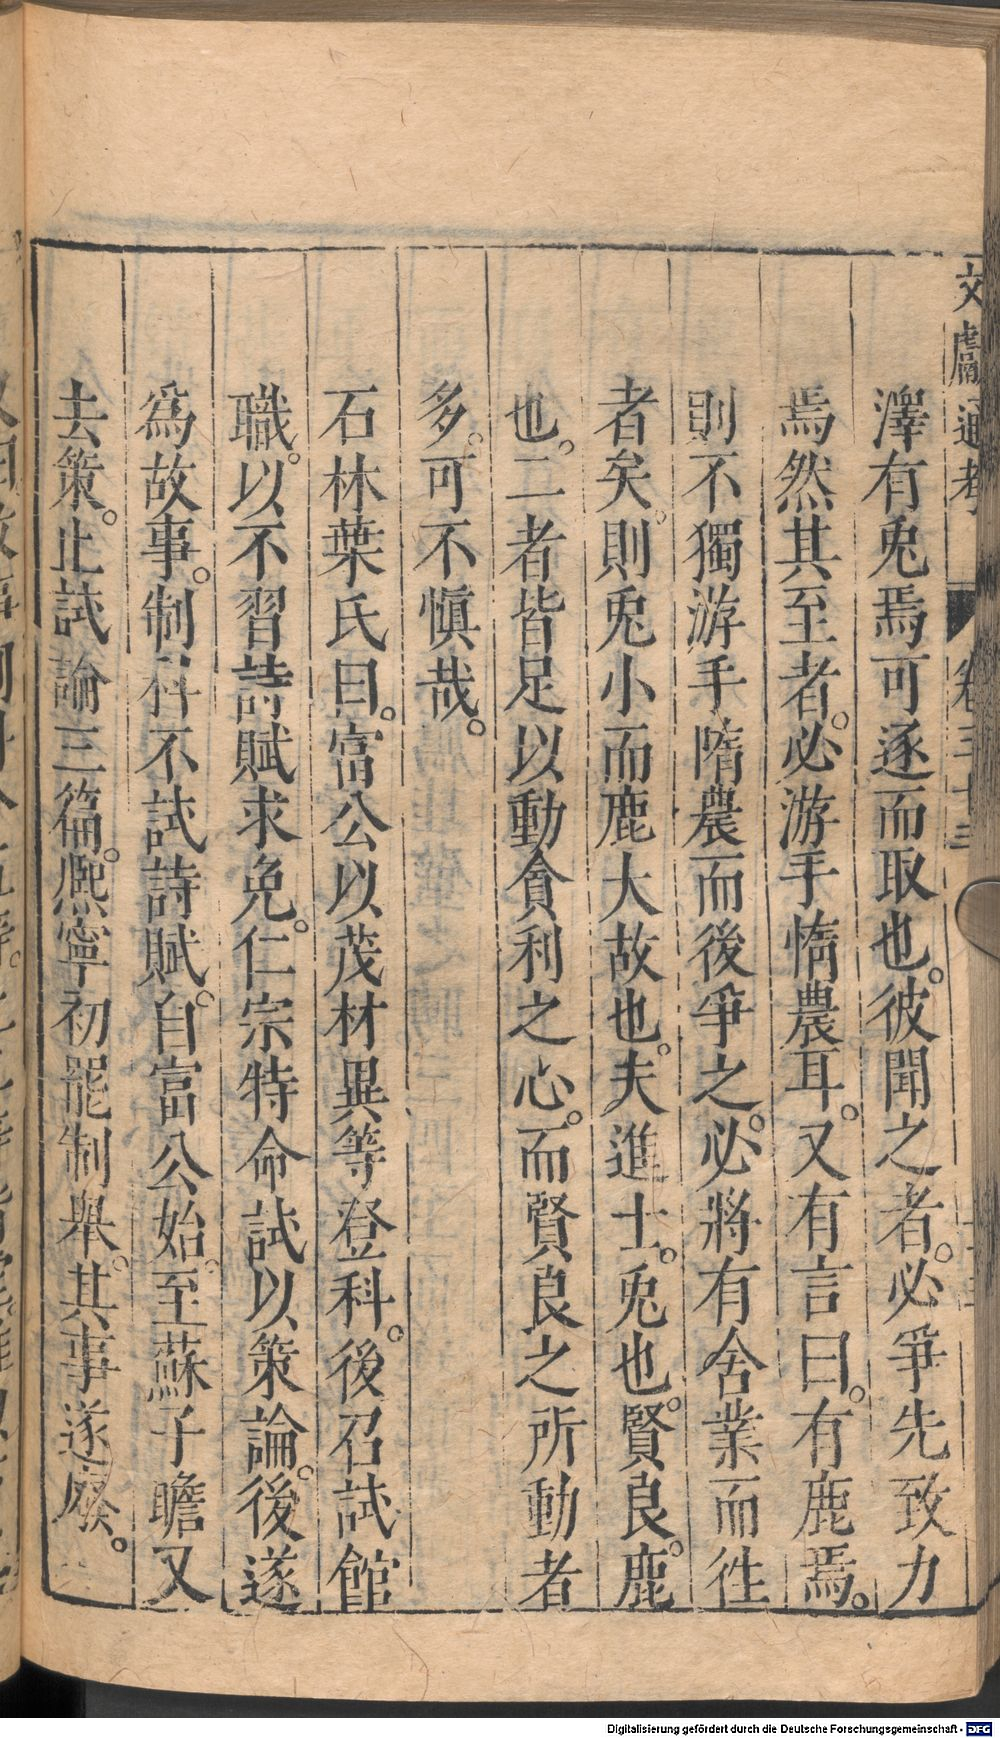 文獻通考 卷三十三
澤有兎焉可逐而取也。彼聞之者。必爭先致力
焉然其至者。必游手惰農耳。又有言曰。有鹿焉。
則不獨游手惰農而後爭之。必將有舍業而徃
者矣。則兎小而鹿大故也。夫進士。兎也。賢良。鹿
也。二者皆足以動貪利之心。而賢良之所動者
多。可不慎哉。
石林葉氏曰。富公以茂材異等登科。後召試館
職。以不習詩賦求免。仁宗特命試以策論。後遂
為故事。制科不試詩賦。自富公始。至蘇子瞻又
去策。止試論三篇。熈寧初罷制舉。其事遂廢。
Digitalisierung gefördert durch die Deutsche Forschungsgemeinschaft - DFG